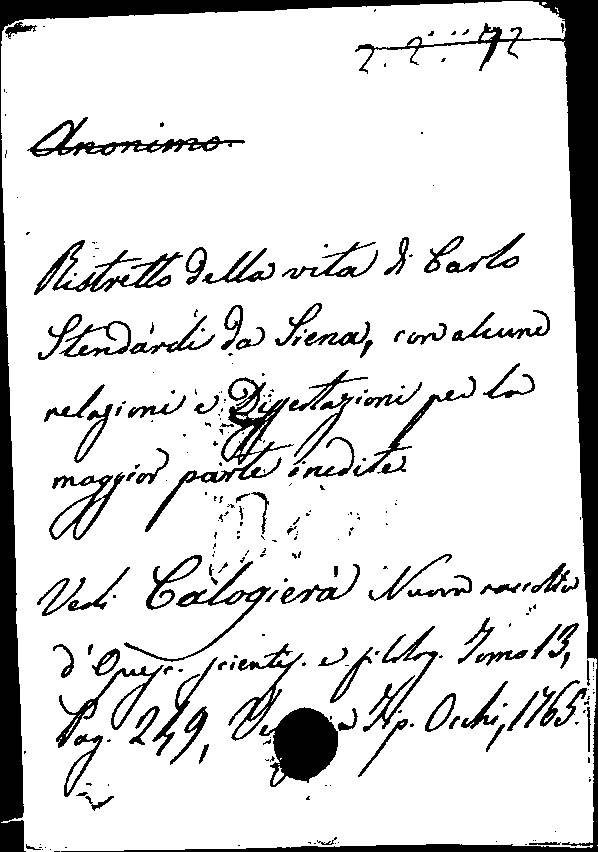 2. 2. 72
Anonimo.
Ristretto della vita di Carlo
Stendardi da Siena, con alcune
relazioni e Digertazioni per la
maggior parte inedite.
Vedi Calogierà Nuova raccolta
d'Opusc. scientif. e filolog. Tomo 13,
Pag. 249, Tip. Occhi, 1765.